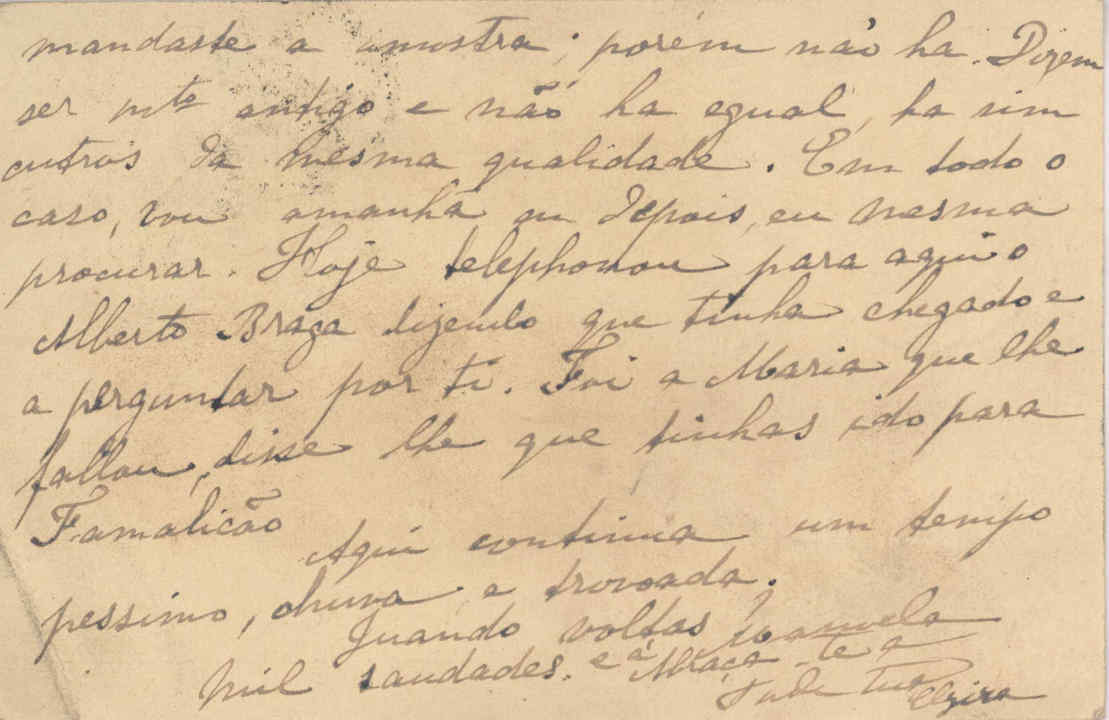 mandaste a amostra; porém não ha. Dizem
ser mto antigo e não ha egual, ha sim
outros da mesma qualidade. Em todo o
caso, vou amanhã ou depois, eu mesma
procurar. Hoje telephonou para aqui o
Alberto Braga dizendo que tinha chegado e
a perguntar por ti. Foi a Maria que lhe
fallou, disse lhe que tinhas ido para
Famalicão
Aqui continua um tempo
pessimo, chuva e trovoada.
Quando voltas
Mil saudades. e Abraça-te a
tua Elzira